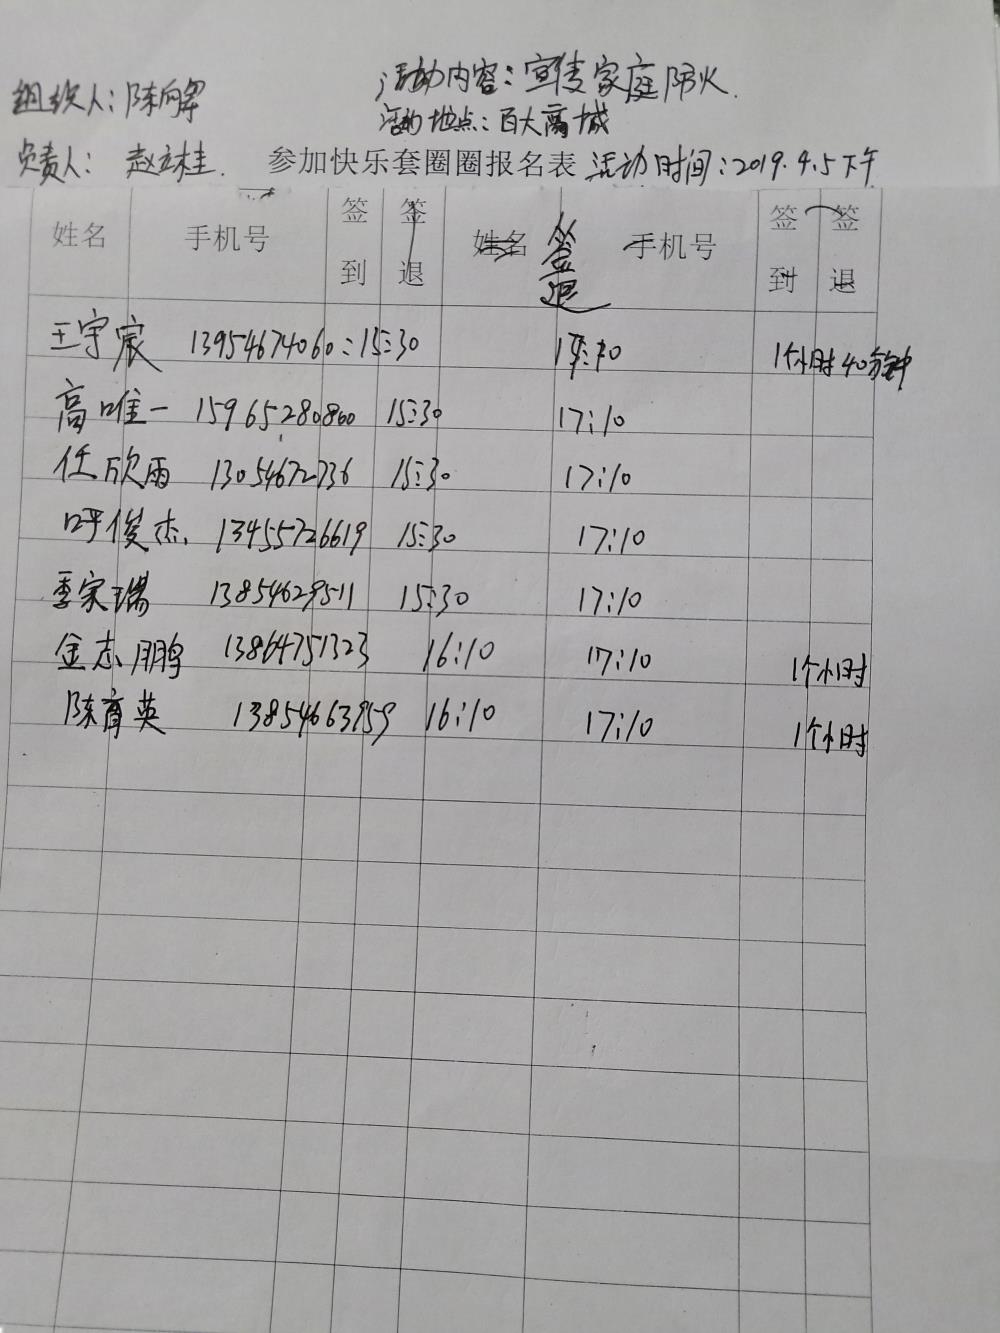 活动内容：宣传家庭防火.
组织人：陈向军
活动地点：百大商城
负责人： 赵立桂. 参加快乐套圈圈报名表 活动时间：2019.4.5下午
姓名 手机号 签到 签退 姓名 签退 手机号 签到 签退
王宇宸 13954674060：15:30 17:10 1个小时40分钟
高唯一 15965280860 15:30 17:10
任欣雨 13054672736 15:30 17:10
呼俊杰 13455726619 15:30 17:10
季家瑞 13854629511 15:30 17:10
金志鹏 13864751323 16:10 17:10 1个小时
陈育英 13854663959 16:10 17:10 1个小时